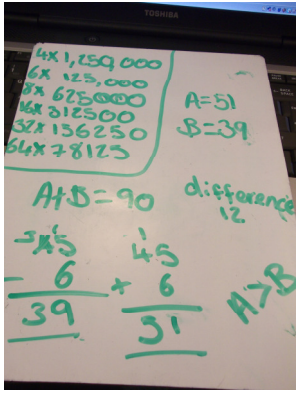 TOSHIBA
4x 1,250,000
6x 125,000
8x 625000
16x 312500
32x 156250
64x 78125
A=51
B=39
A+B=90
difference
12
45
- 6
39
45
+ 6
51
A>B